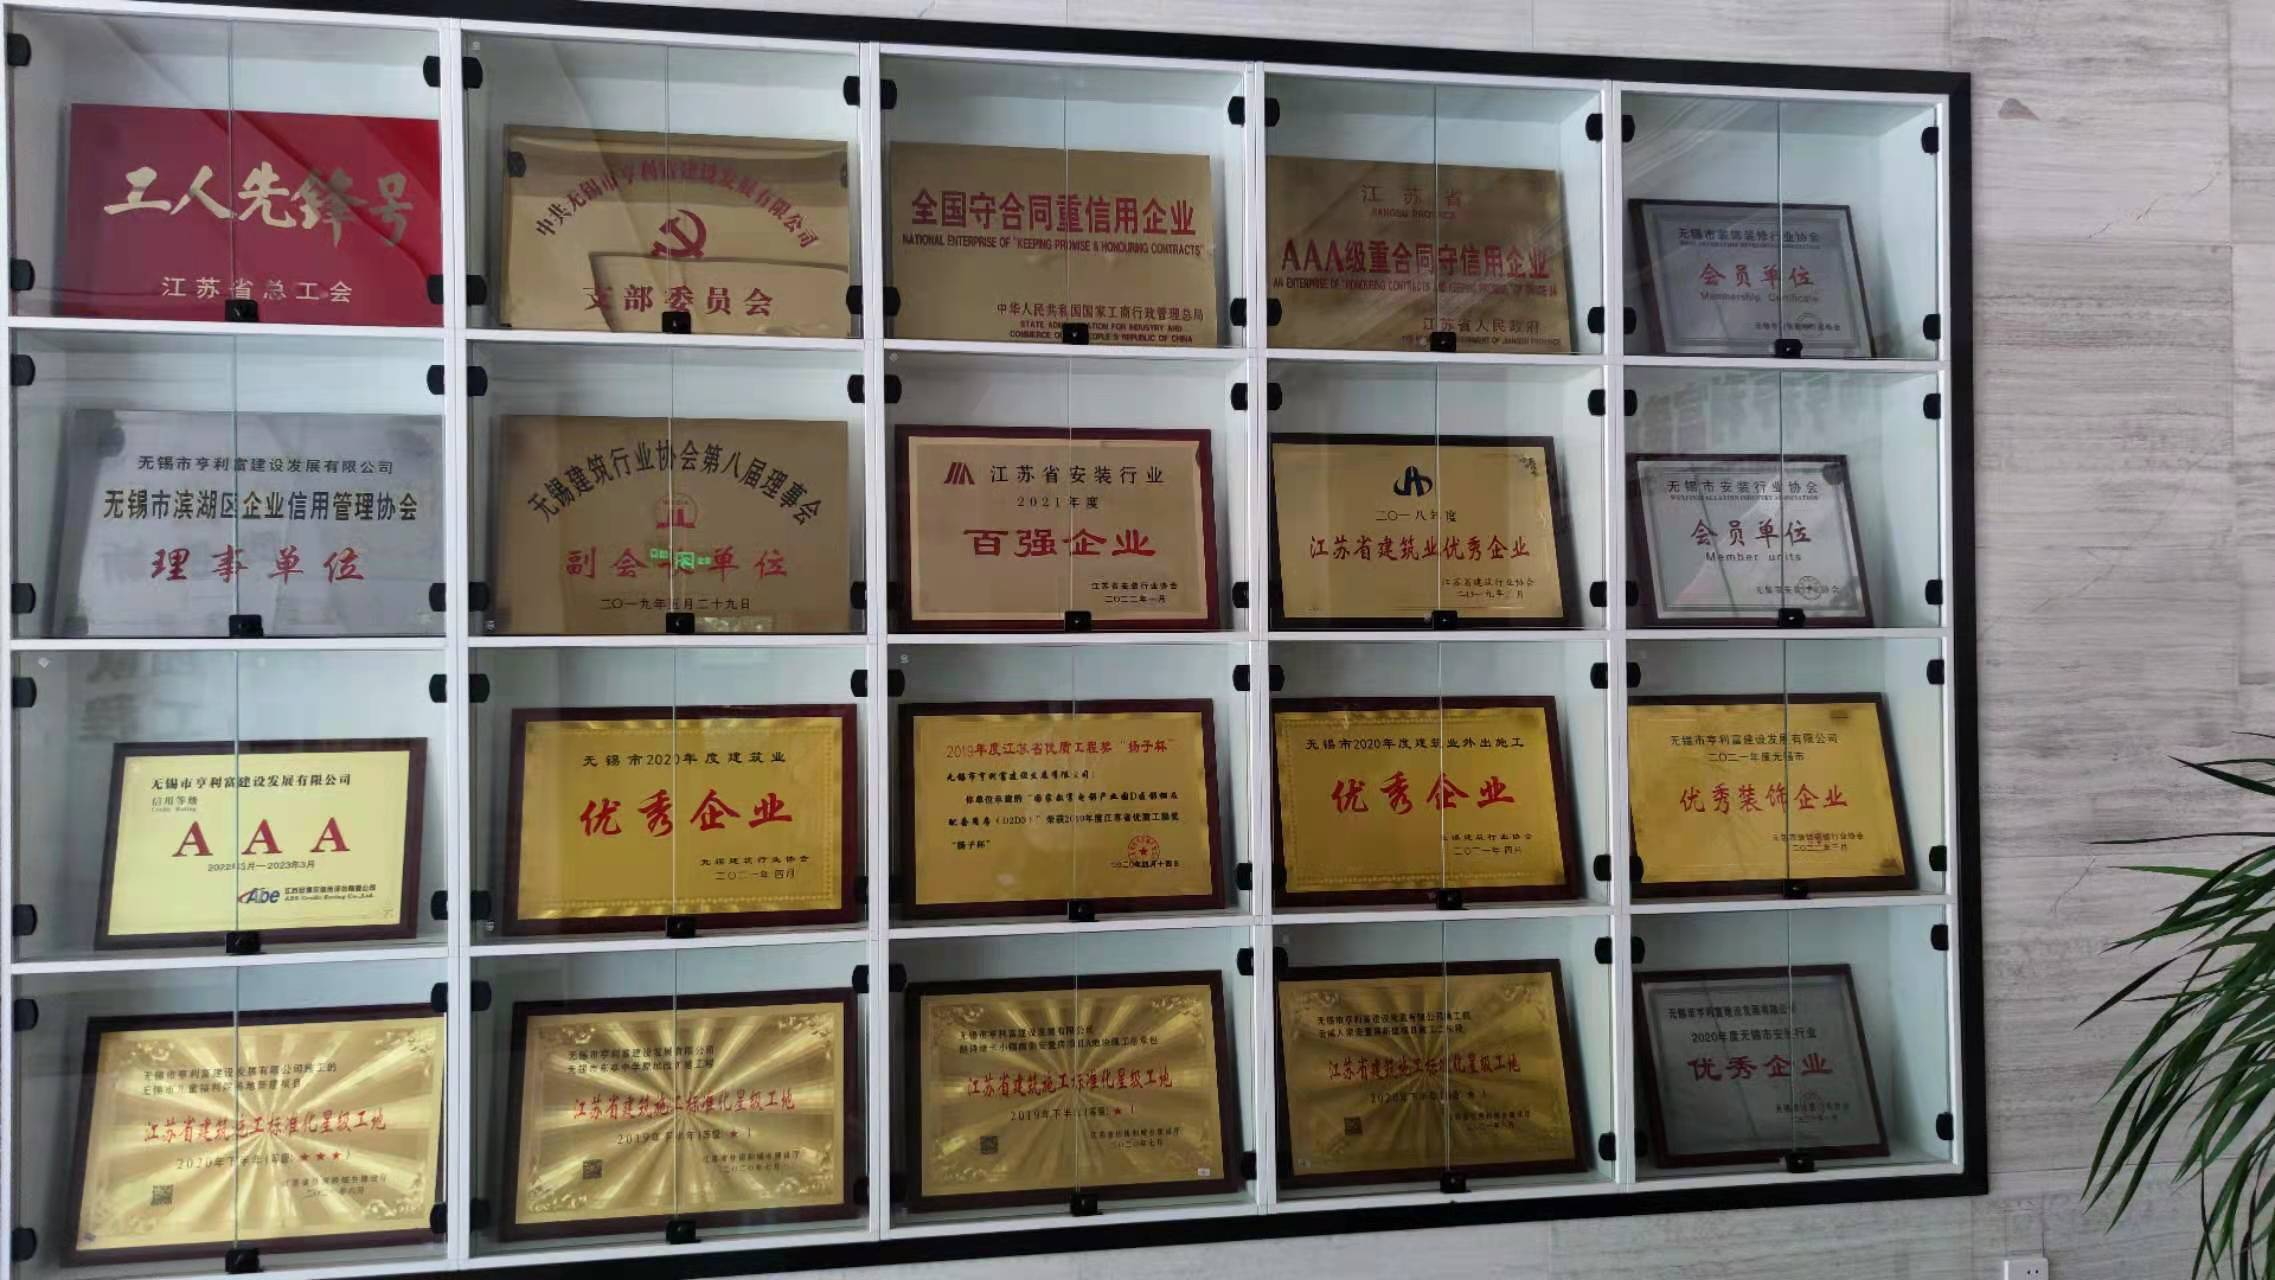 工人先锋号
江苏省总工会
中共无锡市亨利富建设发展有限公司
支部委员会
全国守合同重信用企业
NATIONAL ENTERPRISE OF "KEEPING PROMISE & HONOURING CONTRACTS"
中华人民共和国国家工商行政管理总局
STATE ADMINISTRATION FOR INDUSTRY AND
COMMERCE OF PEOPLE'S REPUBLIC OF CHINA
江苏省
JIANGSU PROVINCE
AAA级重合同守信用企业
江苏省人民政府
无锡市装饰装修行业协会
会员单位
Membership Certificate
无锡市亨利富建设发展有限公司
无锡市滨湖区企业信用管理协会
理事单位
无锡建筑行业协会第八届理事会
副会 单位
二〇一九年五月二十九日
江苏省安装行业
2021年度
百强企业
江苏省安装行业协会
二〇二二年一月
二〇一八年度
江苏省建筑业优秀企业
江苏省建筑行业协会
二〇一九年 月
无锡市安装行业协会
会员单位
Member units
无锡市亨利富建设发展有限公司
信用等级
Credit Rating
AAA
2022年3月—2023年3月
Abe
ABE Credit Rating Co.,Ltd.
无锡市2020年度建筑业
优秀企业
无锡建筑行业协会
二〇二一年四月
2019年度江苏省优质工程奖“扬子杯”
无锡市亨利富建设发展有限公司：
你单位承建的“国家数字电影产业园D区
配套用房（D2D3）”荣获2019年度江苏省优质工程奖
“扬子杯”
二〇二〇年四月十四日
无锡市2020年度建筑业外出施工
优秀企业
无锡建筑行业协会
二〇二一年四月
无锡市亨利富建设发展有限公司
二〇二一年度无锡市
优秀装饰企业
二〇二二年三月
无锡市亨利富建设发展有限公司施工的
无锡市儿童福利院易地新建项目
江苏省建筑施工标准化星级工地
2020年下半年(等级:★★★)
江苏省住房和城乡建设厅
二〇二一年六月
无锡市亨利富建设发展有限公司
江苏省建筑施工标准化星级工地
2019年下半年(等级:★)
江苏省住房和城乡建设厅
二〇二〇年七月
无锡市亨利富建设发展有限公司
江苏省建筑施工标准化星级工地
2019年下半年(等级:★)
江苏省住房和城乡建设厅
二〇二〇年七月
无锡市亨利富建设发展有限公司施工的
江苏省建筑施工标准化星级工地
无锡市亨利富建设发展有限公司
2020年度无锡市安装行业
优秀企业